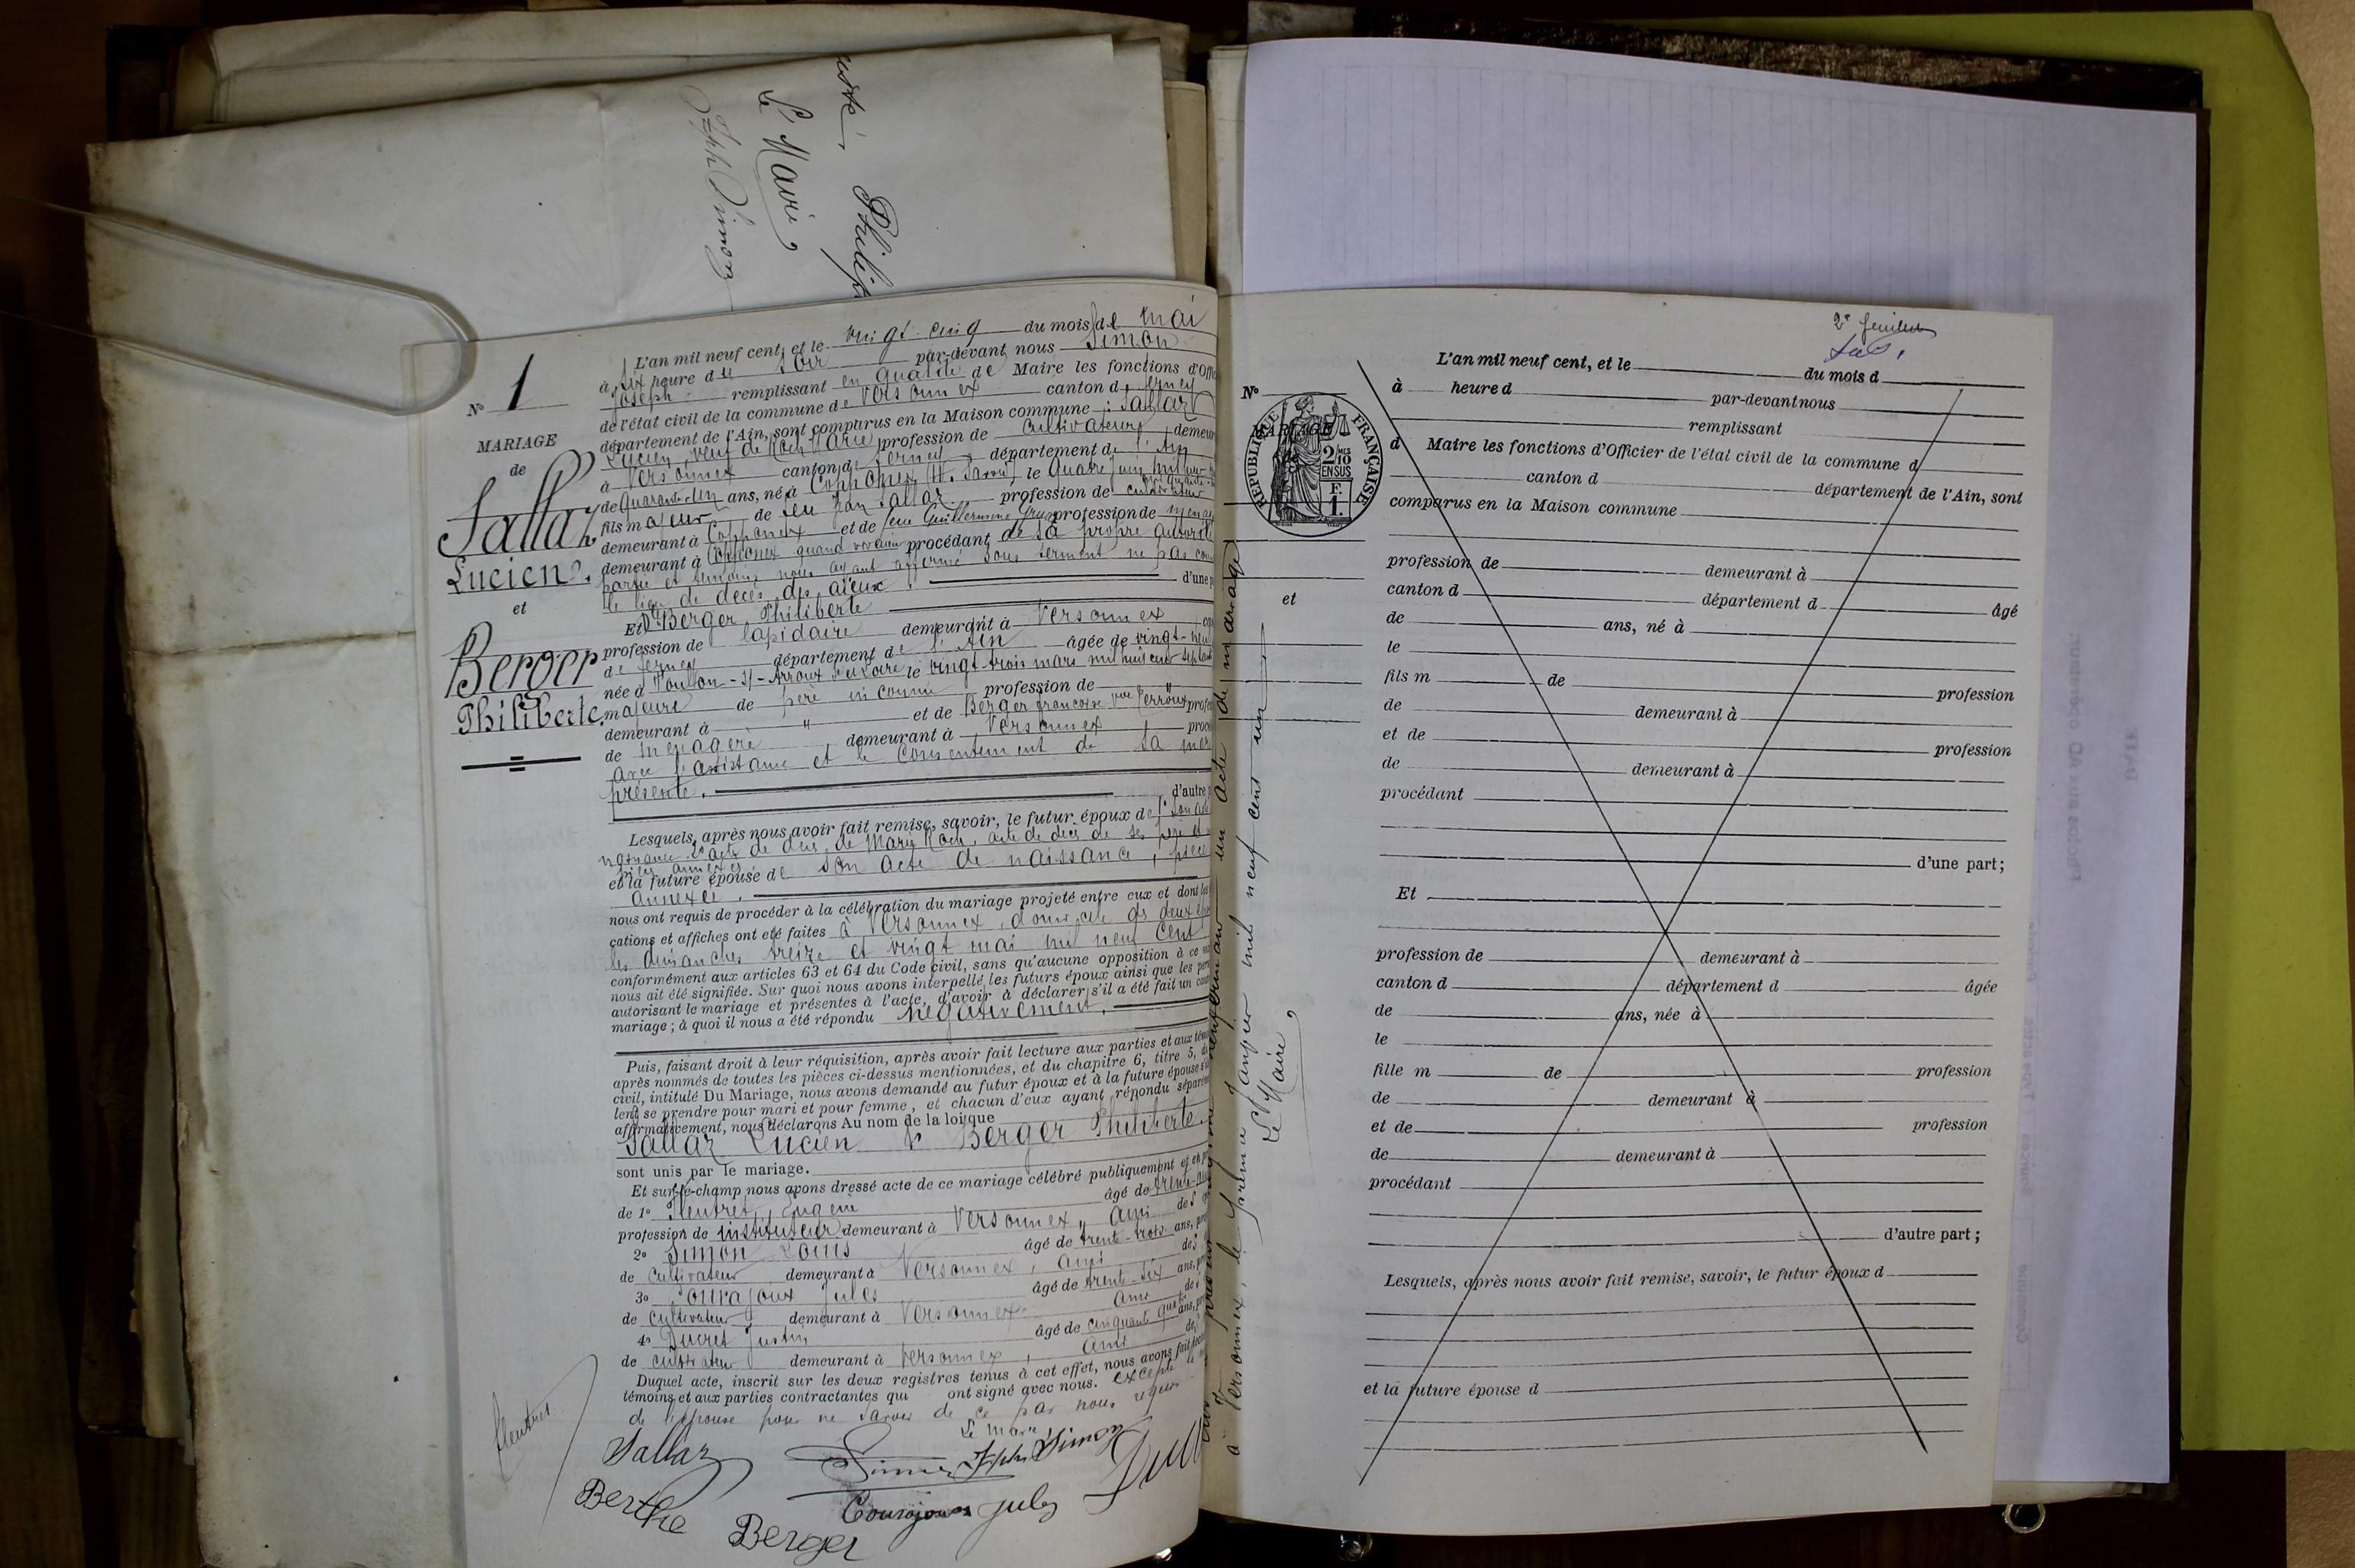 usté, Philip
Le Maire,
Jph Simon
N° 1
MARIAGE
de
Sallaz
Lucien.
et
Berger
Philiberte.
L'an mil neuf cent, et le vingt-cinq du mois de mai
à six heure du soir par-devant nous Simon
Joseph remplissant en qualité de Maire les fonctions d'Offi
de l'état civil de la commune de Versonnex canton de Ferney
département de l'Ain, sont comparus en la Maison commune : Sallaz
Lucien, veuf de Roch Marie profession de cultivateur, demeur
à Versonnex canton de Ferney département de l'Ain
de Quarante un ans, né à Copponex (Hte Savoie) le Quatre juin mil
fils majeur de feu Jean Sallaz profession de cultivateur
demeurant à Copponex et de feue Guillermine profession de
demeurant à Copponex quand vivaient procédant de sa propre autorité
partie et témoins nous ayant affirmé sous serment ne pas con
le lieu de décès des aïeux. d'une p
Et Berger Philiberte
profession de lapidaire demeurant à Versonnex
de Ferney département de l'Ain âgée de vingt-neu
née à Toulon-s/-Arroux le vingt-trois mars mil huit cent septant
majeure de père inconnu profession de
demeurant à " et de Berger Francoise profes
de ménagère, demeurant à Versonnex proc
avec l'assistance et le consentement de sa mère
présente. d'autre
Lesquels, après nous avoir fait remise, savoir, le futur époux de 1° son acte
naissance 2° acte de décès de Marie Roch, acte de décès de ses père et
pièces annexées
et la future épouse de son acte de naissance, pièce
annexée.
nous ont requis de procéder à la célébration du mariage projeté entre eux et dont les
cations et affiches ont été faites à Versonnex, domicile des deux
les dimanches treize et vingt mai mil neuf cent
conformément aux articles 63 et 64 du Code civil, sans qu'aucune opposition à ce m
nous ait été signifiée. Sur quoi nous avons interpellé les futurs époux ainsi que les per
autorisant le mariage et présentes à l'acte, d'avoir à déclarer s'il a été fait un cont
mariage ; à quoi il nous a été répondu négativement.
Puis, faisant droit à leur réquisition, après avoir fait lecture aux parties et aux tém
après nommés de toutes les pièces ci-dessus mentionnées, et du chapitre 6, titre 5, d
civil, intitulé Du Mariage, nous avons demandé au futur époux et à la future épouse s'i
lent se prendre pour mari et pour femme, et chacun d'eux ayant répondu séparém
affirmativement, nous déclarons Au nom de la loi que
Sallaz Lucien & Berger Philiberte.
sont unis par le mariage.
Et sur-le-champ nous avons dressé acte de ce mariage célébré publiquement et en p
de 1° Fleutret, Eugène âgé de trente
profession de instituteur demeurant à Versonnex, ami des
2° Simon Louis âgé de trente-trois ans, pro
de cultivateur, demeurant à Versonnex, ami des
3° Courajoux Jules âgé de trente-six ans, pro
de cultivateur demeurant à Versonnex. ami des
4° Ducret Justin âgé de cinquante quatre ans, pr
de cultivateur demeurant à Versonnex, ami des
Duquel acte, inscrit sur les deux registres tenus à cet effet, nous avons fait lecture
témoins et aux parties contractantes qui ont signé avec nous. excepté la
de l'épouse pour ne savoir de ce par nous requis
Le Maire,
Fleutret
Sallaz Simon Jph Simon
Berthe Berger Courajoux Jules
renfermant un acte de mariage
à Versonnex, le premier janvier mil neuf cent un
Le Maire,
2e feuillet
N°
MARIAGE
de
et
RÉPUBLIQUE FRANÇAISE
2/10 MES EN SUS
F.
1.
L'an mil neuf cent, et le du mois d
à heure d par-devant nous
remplissant
d Maire les fonctions d'Officier de l'état civil de la commune d
canton d département de l'Ain, sont
comparus en la Maison commune
profession de demeurant à
canton d département d âgé
de ans, né à
le
fils m de profession
de demeurant à
et de profession
de demeurant à
procédant
d'une part;
Et
profession de demeurant à
canton d département d âgée
de ans, née à
le
fille m de profession
de demeurant à
et de profession
de demeurant à
procédant
d'autre part ;
Lesquels, après nous avoir fait remise, savoir, le futur époux d
et la future épouse d